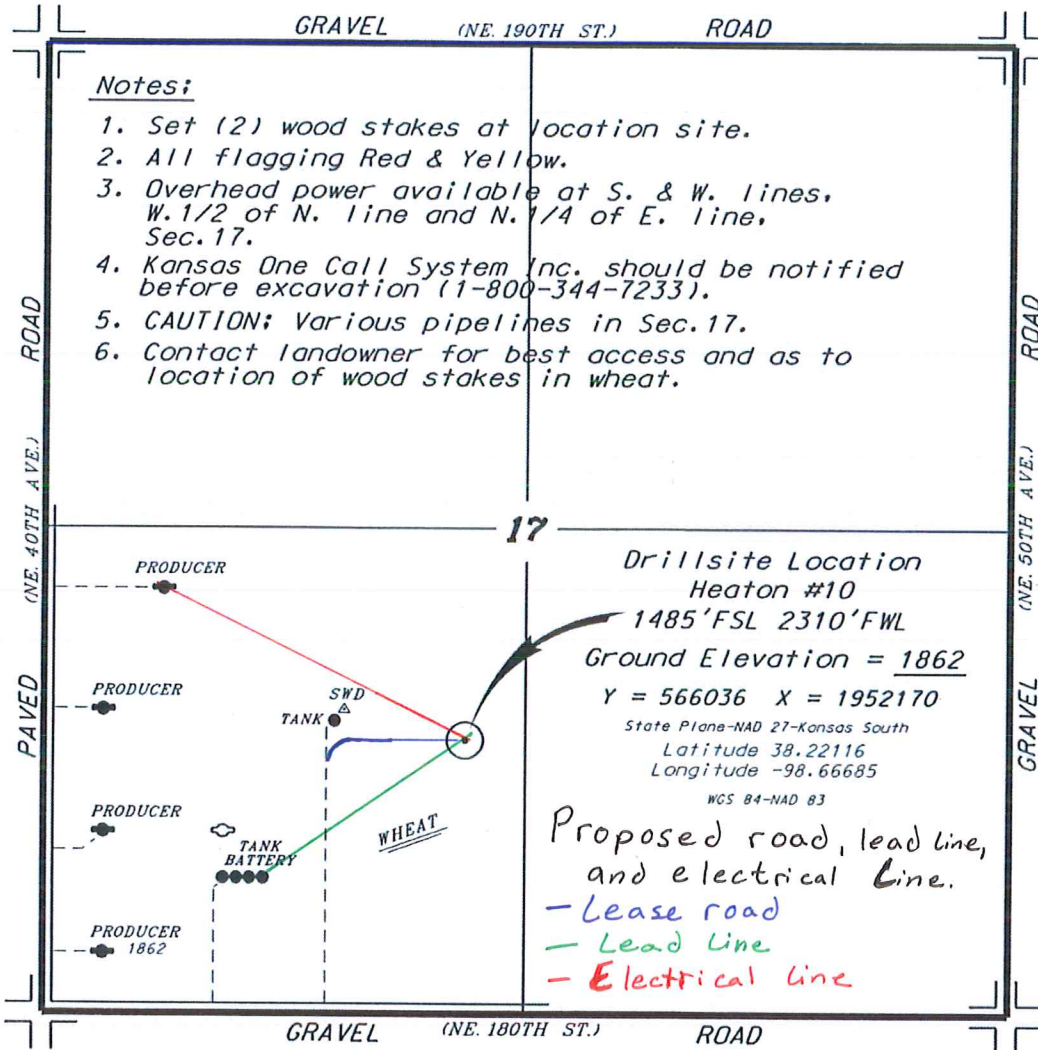 GRAVEL (NE. 190TH ST.) ROAD
Notes:
1. Set (2) wood stakes at location site.
2. All flagging Red & Yellow.
3. Overhead power available at S. & W. lines,
W. 1/2 of N. line and N. 1/4 of E. line,
Sec. 17.
4. Kansas One Call System Inc. should be notified
before excavation (1-800-344-7233).
5. CAUTION: Various pipelines in Sec. 17.
6. Contact landowner for best access and as to
location of wood stakes in wheat.
PAVED (NE. 40TH AVE.) ROAD
GRAVEL (NE. 50TH AVE.) ROAD
17
PRODUCER
PRODUCER
SWD
TANK
PRODUCER
TANK
BATTERY
WHEAT
PRODUCER
1862
Drillsite Location
Heaton #10
1485'FSL 2310'FWL
Ground Elevation = 1862
Y = 566036 X = 1952170
State Plane-NAD 27-Kansas South
Latitude 38.22116
Longitude -98.66685
WGS 84-NAD 83
Proposed road, lead line,
and electrical Line.
- Lease road
- Lead Line
- Electrical Line
GRAVEL (NE. 180TH ST.) ROAD